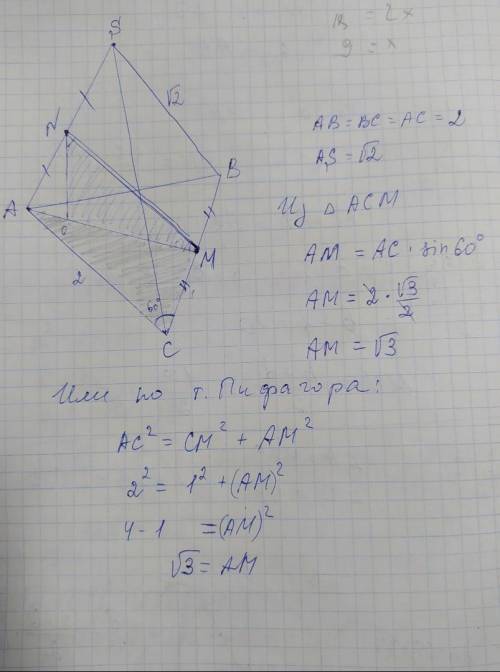 = 2x
9 = x
S
√2
N
B
A
O
M
2
60°
C
AB = BC = AC = 2
AS = √2
Из △ ACM
AM = AC · sin 60°
AM = 2 · √3/2
AM = √3
Или по т. Пифагора:
AC² = CM² + AM²
2² = 1² + (AM)²
4 - 1 = (AM)²
√3 = AM